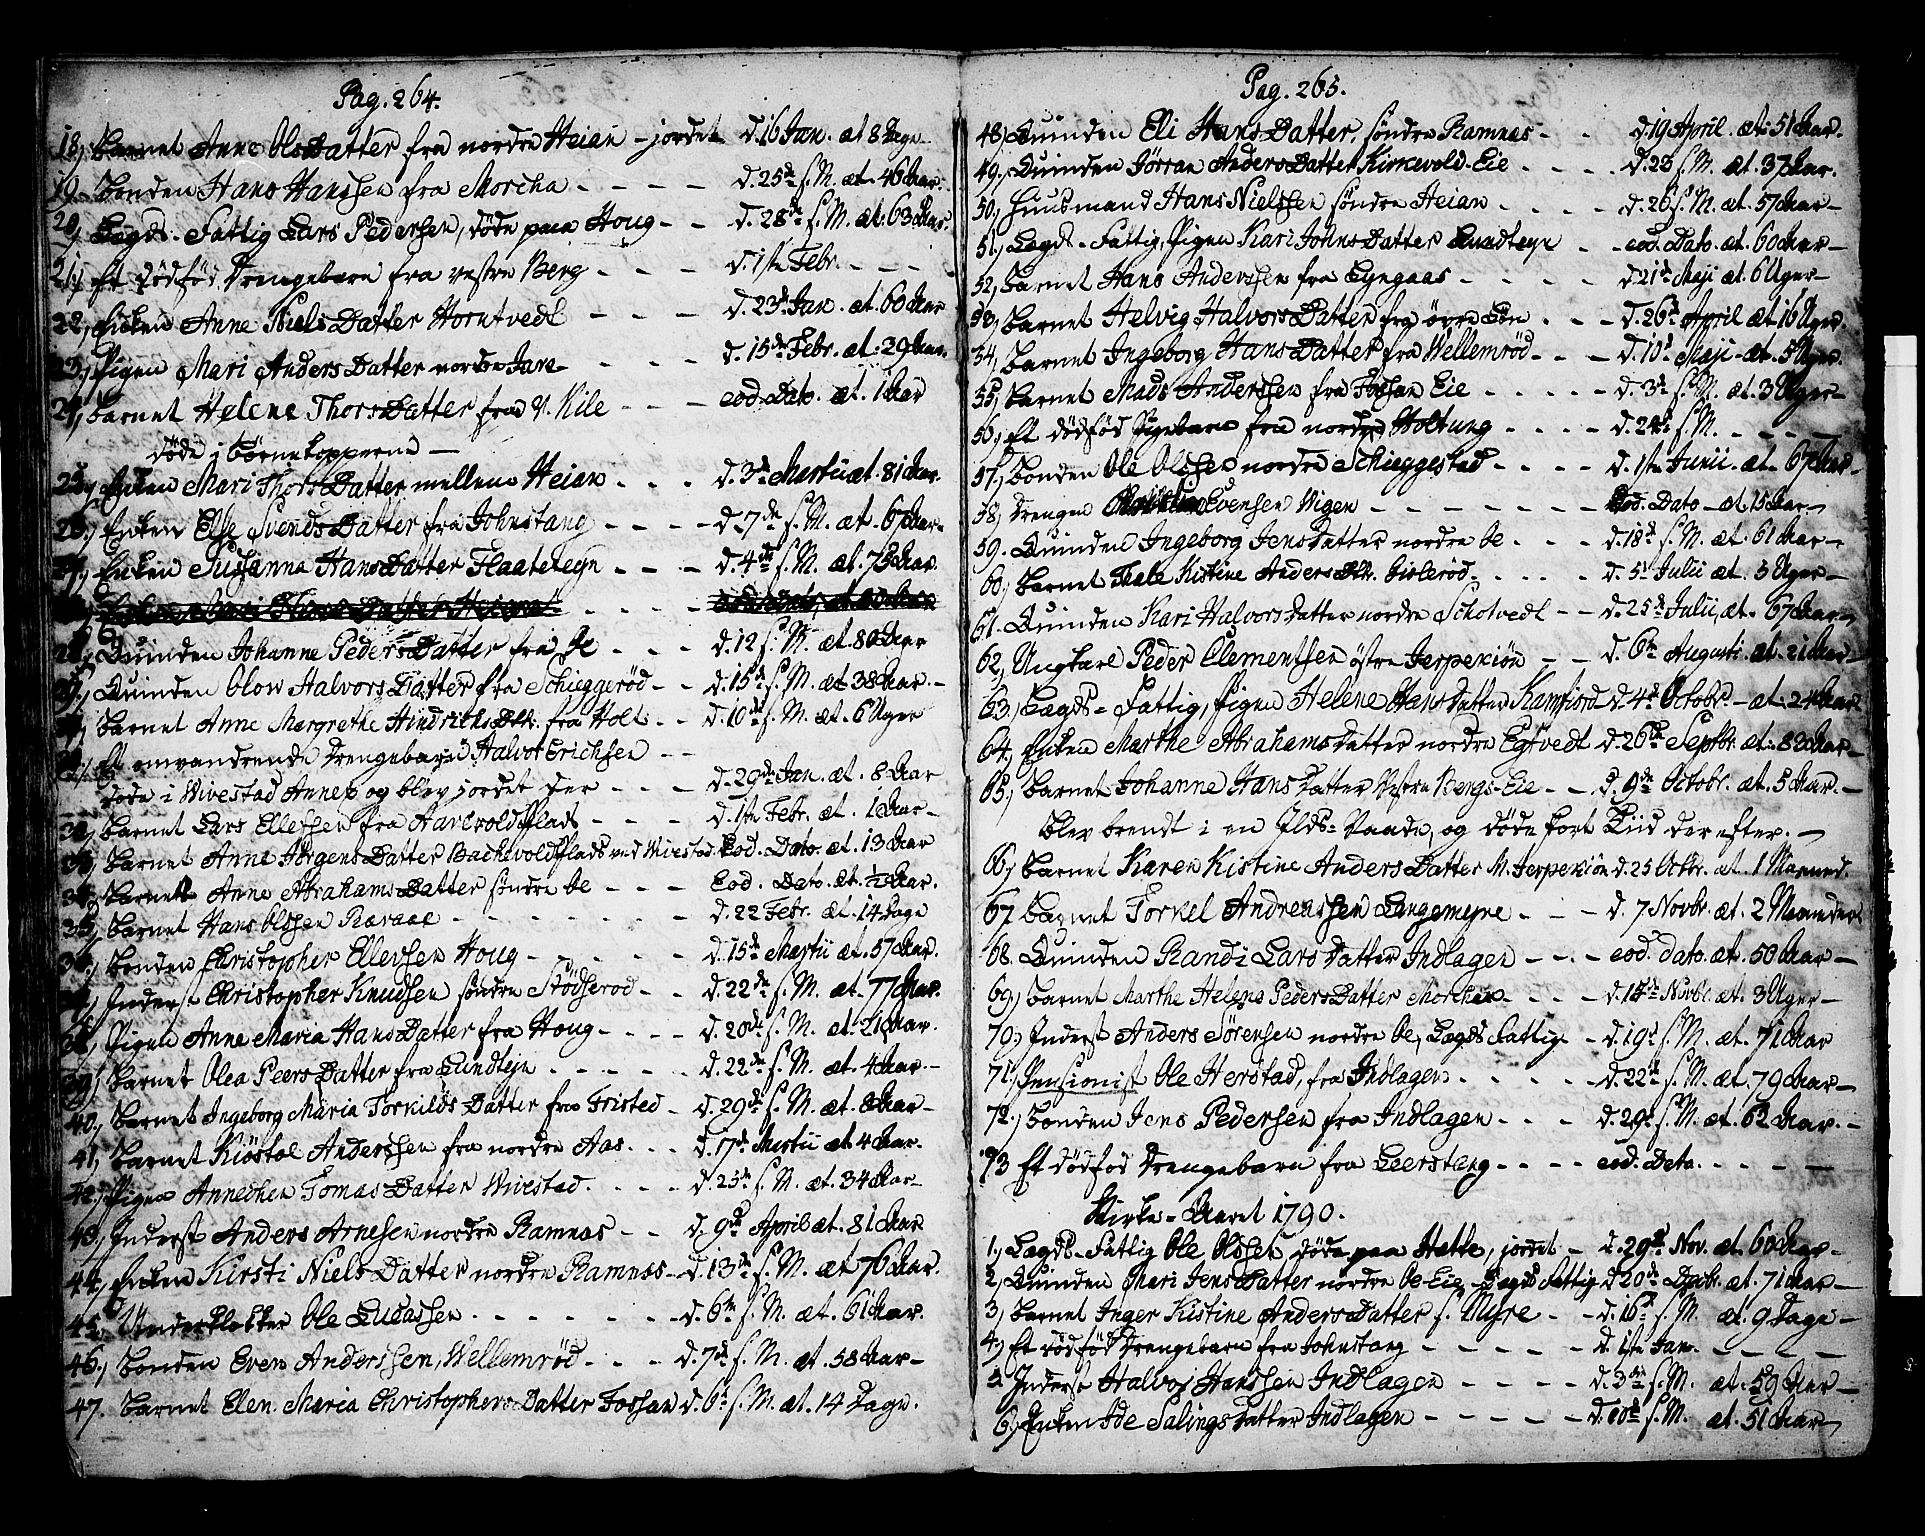 Pag. 264.
18, Barnet Anne OlsDatter fra nordre Heian - jordet d. 16 Jan. æt 8 Dage
19. Bonden Hans Hanssen fra Morcha - - - - d. 25de s. M. æt. 46 Aar.
20, Lægds-Fattig Lars Pedersen, döde paa Houg - - d. 28de s. M. æt. 63 Aar.
21, Et dödföd Drengebarn fra vestre Berg - - - - d. 1ste Febr. - - -
22, Enken Anne NielsDatter Horntvedt - - - d. 23de Jan. æt. 60 Aar
23, Pigen Mari AndersDatter nordre Jare - - - d. 15de Febr. æt. 29 Aar.
24, Barnet Helene ThorsDatter fra V. Kile - - - eod. Dato. æt. 1 Aar
döde i Börnekopperne -
25, Enken Mari ThorsDatter mellem Heian . . . d. 3de Martii æt. 81 Aar.
26, Enken Else SvendsDatter fra Johnstang - - - - d. 7de s. M. æt. 67 Aar.
27, Enken Susanna HansDatter Flaateteyn - - - d. 4de s. M. æt. 73 Aar.
28, Quinden Johanne PedersDatter fra Oe - - - d. 12 s. M. æt. 80 Aar
29, Quinden Olow HalvorsDatter fra Schieggeröd - - d. 15de s. M. æt 38 Aar. -
Barnet Anne Margrethe HindrichsDtr. fra Holt - - d. 10de s. M. æt. 6 Uger
Et omvandrende Drengebarn Halvor Erichsen - -
döde i Wivestad Annex og blev jordet der - - - d. 29de Jan. æt. 8 Aar
32, Barnet Lars Ellefsen fra Aarevoldsplads - - - d. 1ste Febr. æt. 1 Aar -
33, Barnet Anne JörgensDatter Bachevoldsplads ved Wivestad Eod. Dato. æt. 13 Aar
34, Barnet Anne AbrahamsDatter söndre Oe - - - Eod. Dato. æt. ½ Aar.
35, Barnet Hans Olssen Rævaae - - - - - - - d. 22 Febr. æt. 14 Dage
36, Bonden Christopher Ellevsen Houg - - - - - d. 15de Martii æt. 57 Aar.
37, Inderst Christopher Knudsen söndre Stödseröd - - d. 22de s. M. æt. 77 Aar.
38, Pigen Anne Maria HansDatter fra Houg - - - - d. 20de s. M. æt. 21 Aar.
39, Barnet Olea PeersDatter fra Lundteyn - - - - - d. 22de s. M. æt. 4 Aar. -
40, Barnet Ingeborg Maria TorkildsDatter fra Fristed - d. 29de s. M. æt. 8 Aar -
41, Barnet Kiöstol Anderssen fra nordre Aas. . . . d. 17de Martii æt 4 Aar.
42, Pigen Annechen TomasDatter Wivestad. . . . d. 25de s. M. æt. 34 Aar -
43, Inderst Anders Arnesen nordre Ramnas - - d. 9de April æt. 81 Aar
44, Enken Kirsti NielsDatter nordre Ramnas - d. 13de s. M. æt 76 Aar.
45, Underklokker Ole Lucassen - - - - - - - d. 6te s. M. æt. 61 Aar.
46, Bonden Even Anderssen, Wellemröd - - - d. 7de s. M. æt. 58 Aar -
47. Barnet Elen Maria ChristophersDatter Fossan d. 6te s. M. æt. 14 Dage.
Pag. 265.
48, Quinden Eli HansDatter, söndre Ramnas - - d. 19 April. æt. 51 Aar.
49, Quinden Jörran AndersDatter Kirkevold-Eie - - - - d. 23 s. M. æt. 37 Aar.
50, Huusmand Hans Nielssen söndre Heian - - - - d. 26 s. M. æt. 57 Aar -
51, Lægds-Fattig, Pigen Kari JohnsDatter Lundteyn - - eod. Dato. æt. 60 Aar -
52, Barnet Hans Anderssen fra Lyngaas - - - - d. 21de Maji æt. 6 Uger -
53, Barnet Helvig HalvorsDatter fra övre Lön . - - d. 26de April æt 16 Uger
54, Barnet Ingeborg HansDatter fra Wellemröd - - - d. 10de Maji - æt. 5 Uger.
55, Barnet Mads Anderssen fra Fossan Eie - - - - - d. 3de s. M. æt. 3 Uger -
56, Et dödföd Pigebarn fra nordre Holtung - - - - d. 24de s. M. - - - -
57, Bonden Ole Olssen nordre Schieggestad - - - - d. 1ste Junii. æt. 67 Aar -
58, Drengen Christian Evensen Wigen - - - - - - - Eod. Dato - æt 15 Aar -
59. Quinden Ingeborg JensDatter nordre Oe - - - d. 18de s. M. æt. 61 Aar -
60, Barnet Thale Kistine AndersDtr. Gisleröd - - - - d. 5te Julii æt. 3 Uger -
61. Quinden Kari HalvorsDatter nordre Schotvedt - - d. 25de Julii, æt. 67 Aar -
62, Ungkarl Peder Clementsen östre Jerpekiön - - d. 6te Augusti. æt. 21 Aar -
63, Lægds-Fattig, Pigen Helene HansDatter Kamfiord d. 4de Octobr. - æt. 24 Aar
64, Enken Marthe AbrahamsDatter nordre Egtvedt d. 26de Septbr. æt. 82 Aar -
65, Barnet Johanne HansDatter Vestre Bergs-Eie - - d. 9de Octobr. æt. 5 Aar. -
Blev brendt i en Ilds-Vaade, og döde kort Tiid der efter. -
66, Barnet Karen Kistine AndersDatter M. Jerpekiön d. 25 Octbr. æt. 1 Maaned.
67 Barnet Torkel Andreassen Langemyre - - - d. 7 Novbr. æt. 2 Maaneder
68. Quinden Randi LarsDatter Indlagen - - - - eod. dato. æt. 50 Aar -
69, Barnet Marthe Helene PedersDatter Morchen - - - - d. 14de Novbr. æt. 3 Uger -
70, Inderst Anders Sörensen nordre Oe, Lægds Fattig - d. 19de s. M. æt. 71 Aar
71, Pensionist Ole Herstad, fra Indlagen - - - - - d. 22de s. M. æt. 79 Aar -
72, Bonden Jens Pedersen fra Indlagen - - - d. 29de s. M. æt. 62 Aar. -
73 Et dödfod Drengebarn fra Leerstang - - - - eod. Dato. - - - -
Kirke-Aaret 1790.
1, Lægds-Fattig Ole Olssen, döde paa Hatte, jordet - d. 29de Nov. æt. 60 Aar -
2, Quinden Mari JensDatter nordre Oe-Eie - Lægds Fattig d. 20de Decbr. æt. 71 Aar -
3, Barnet Inger Kistine AndersDatter s. Myre - - d. 16de s. M. æt. 9 Dage -
4, Et dödföd Drengebarn fra Johnstang - - - - - d. 1ste Jan. - - - -
5 Inderst Halvor Hanssen Indlagen - - - - - d. 3de s. M. æt. 59 Aar -
6, Enken Ide SalingsDatter Indlagen - - - - - d. 10de s. M. æt. 51 Aar -